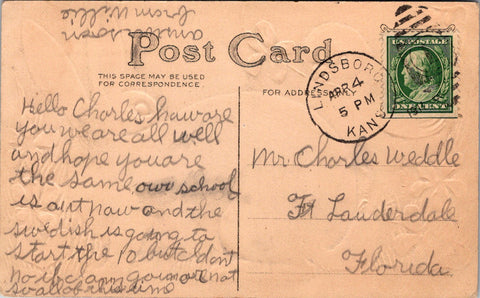 Post Card
THIS SPACE MAY BE USED
FOR CORRESPONDENCE.
FOR ADDRESS
LINDSBORG
APR 4
5 PM
KANS
U.S. POSTAGE
ONE CENT
Hello Charles haware
you we are all well
and hope you are
the same our school
is aut naw and the
swedish is going to
start the 10 but I don't
no if I can go in or not
so all of this time
Mr Charles Weddle
Ft Lauderdale
Florida
from Willie